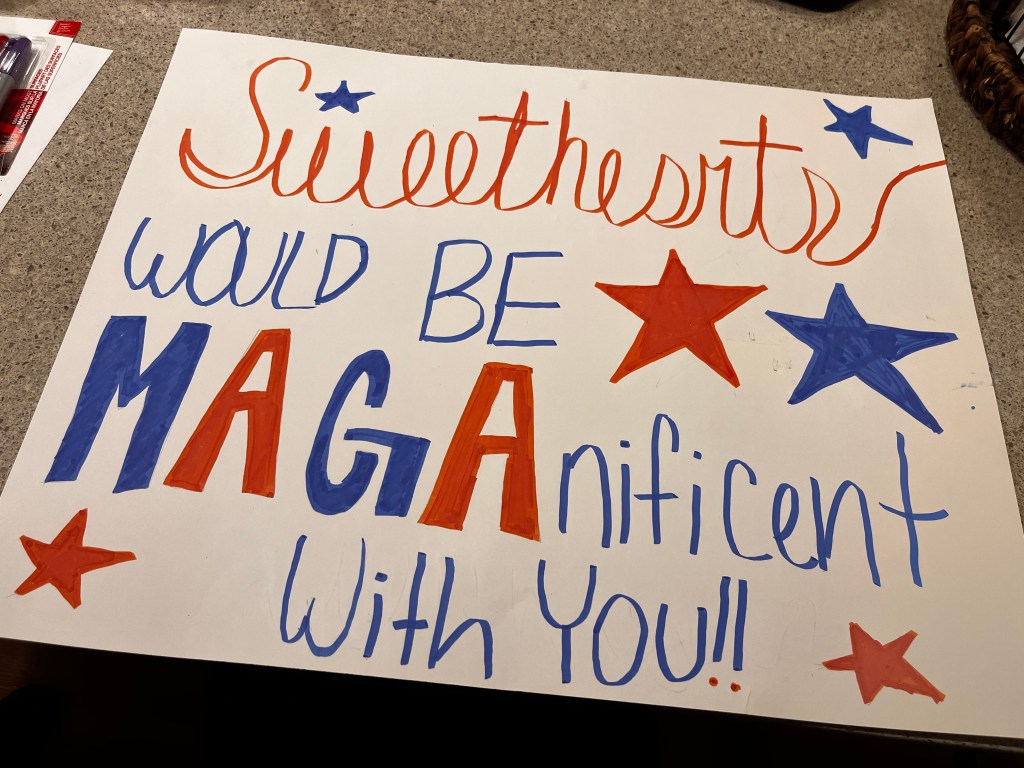 Sweethearts
WOULD BE
MAGAnificent
With YOU!!